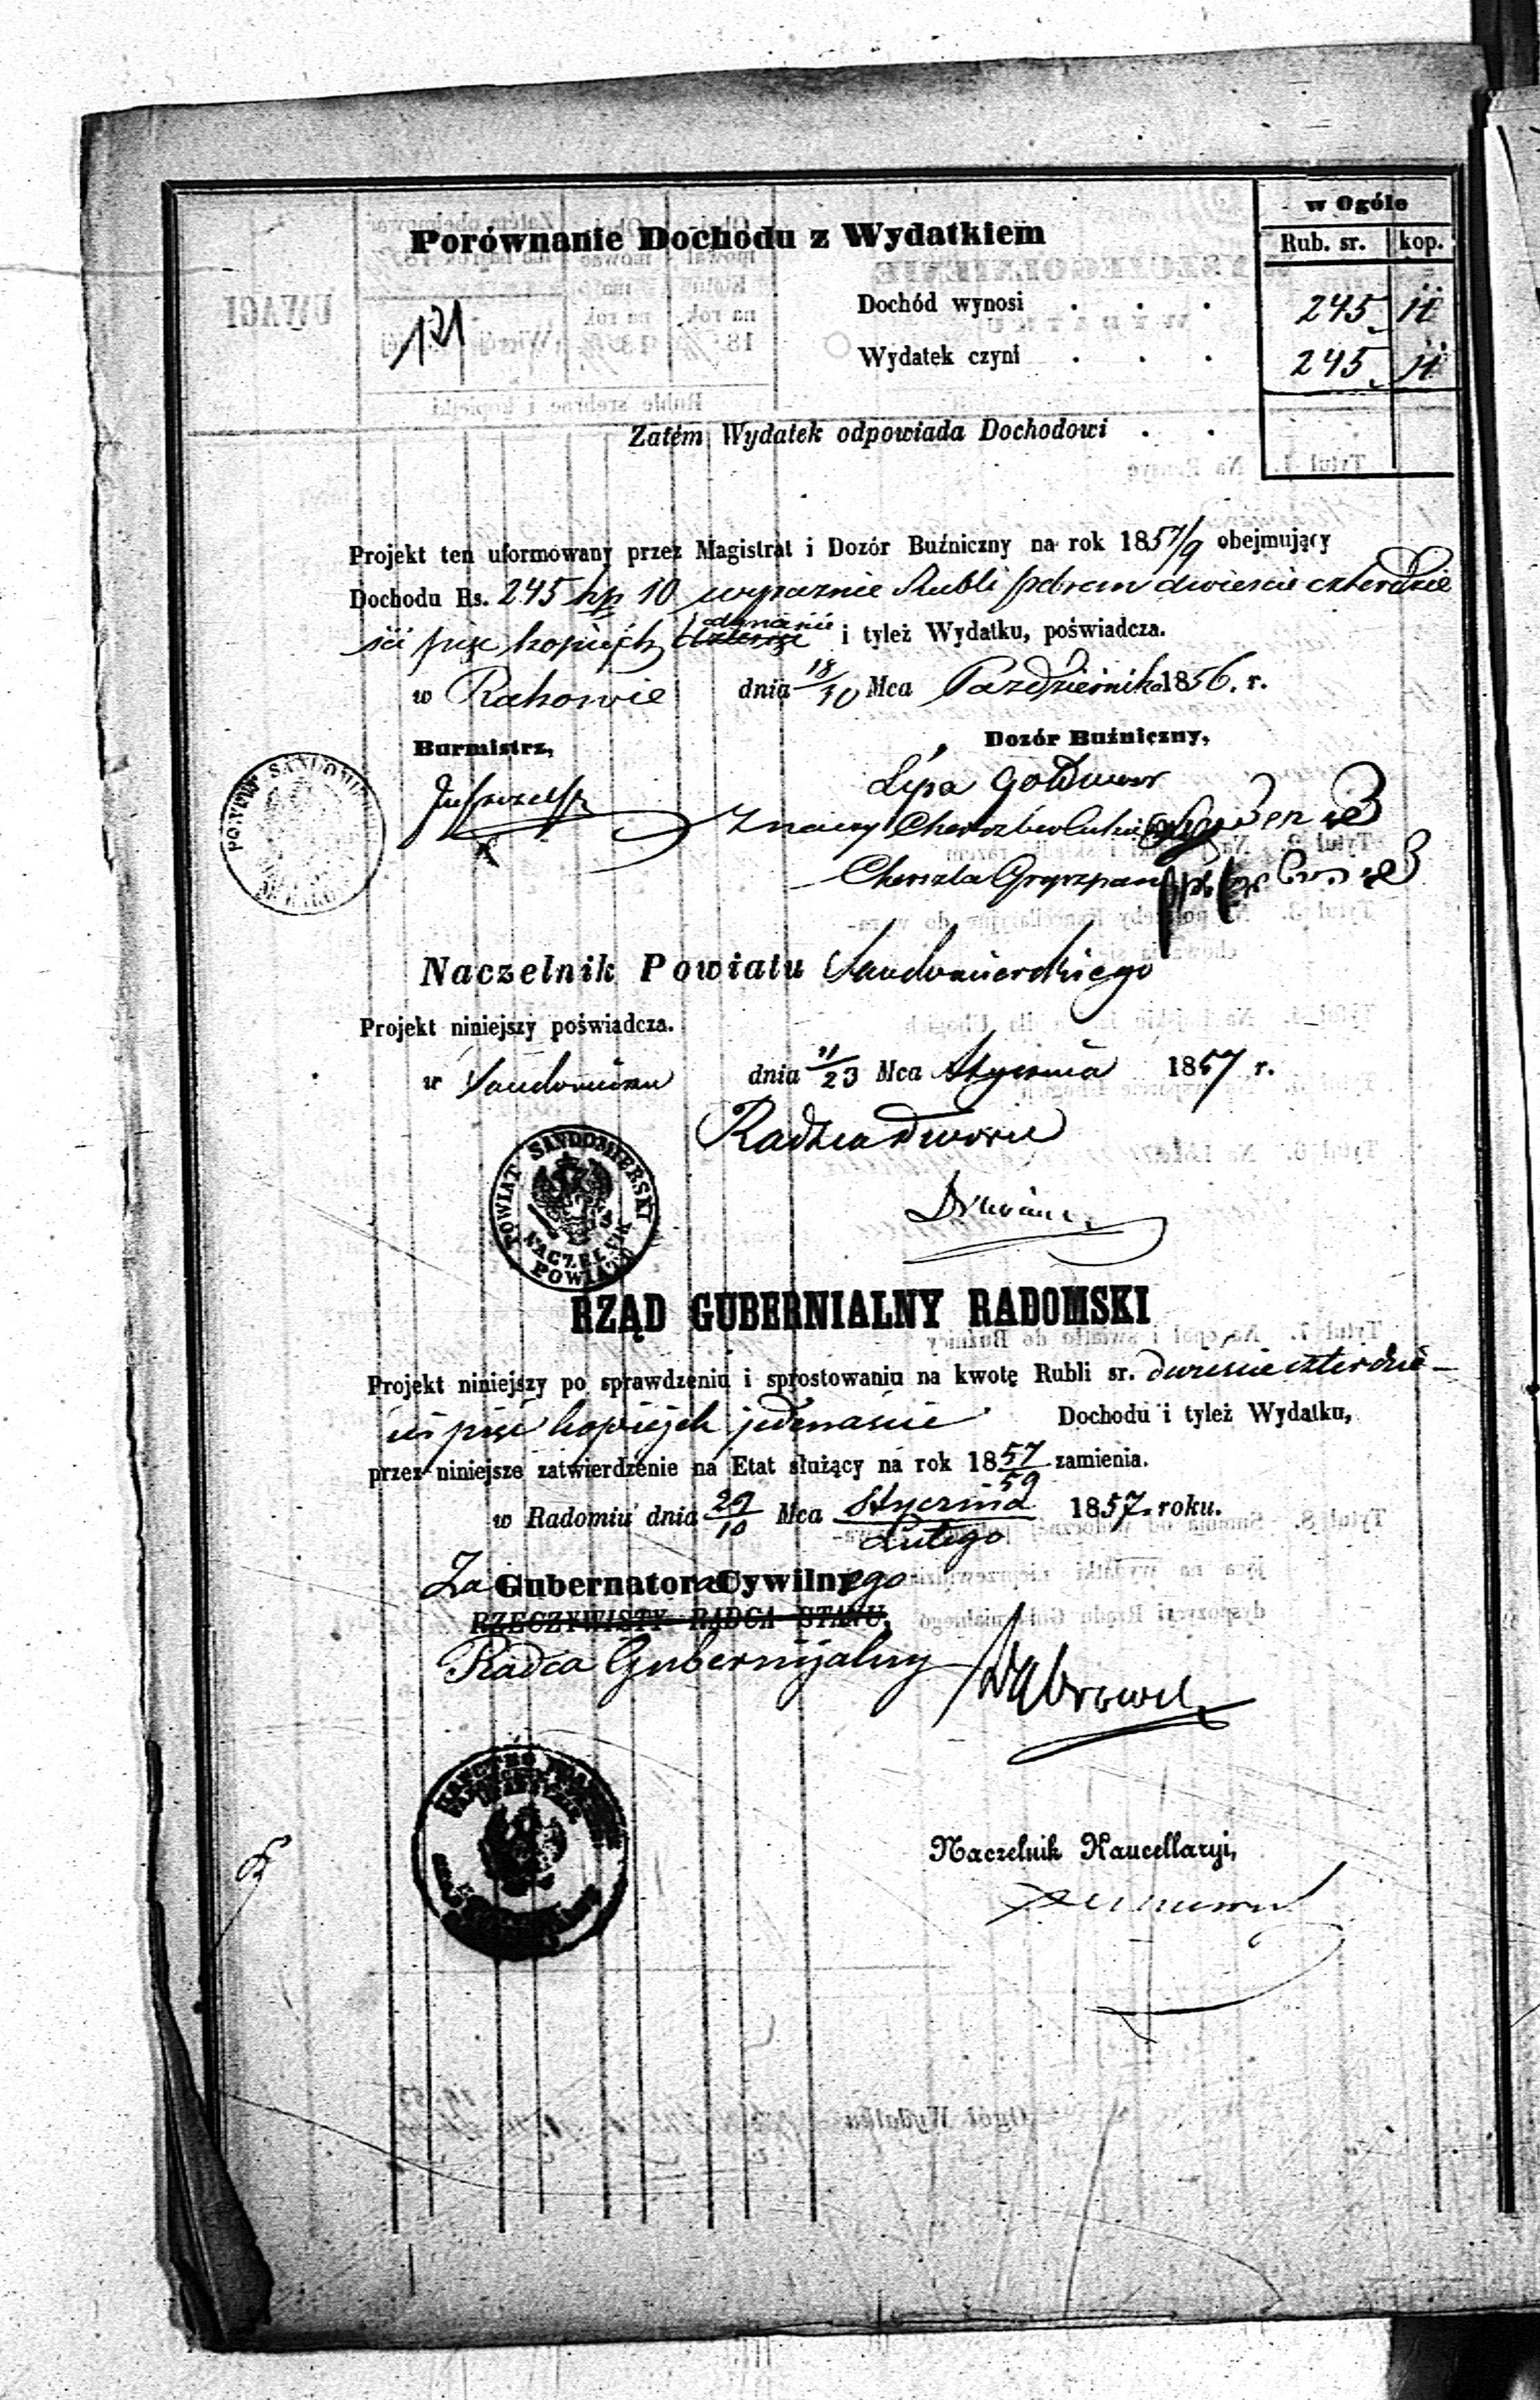 w Ogóle
Porównanie Dochodu z Wydatkiem
Rub. sr. kop.
121
Dochód wynosi . . . 245 11
Wydatek czyni . . . 245 11
Zatém Wydatek odpowiada Dochodowi . .
Projekt ten uformowany przez Magistrat i Dozór Buźniczny na rok 1857/9 obejmujący
Dochodu Rs. 245 kp 10 wyraznie Rubli srebrem dwiescie czterdzie
sci pięc kopiejek i tyleż Wydatku, poświadcza.
w Rakowie dnia 18/30 Mca Październik 1856. r.
Burmistrz, Dozór Buźniczny,
Lipa Goldwasser
Znaczy
Chenzla Grynzpan
Naczelnik Powiatu Sandomierskiego
Projekt niniejszy poświadcza.
w Sandomierzu dnia 11/23 Mca Stycznia 1857 r.
Radzca Dworu
POWIAT SANDOMIERSKI
NACZELNIK
POWIATU
RZĄD GUBERNIALNY RADOMSKI
Projekt niniejszy po sprawdzeniu i sprostowaniu na kwotę Rubli sr. dwiescie czterdzie-
sci pięc kopiejek jedenascie Dochodu i tyleż Wydatku,
przez niniejsze zatwierdzenie na Etat służący na rok 1857/59 zamienia.
w Radomiu dnia 29/10 Mca Stycznia/Lutego 1857. roku.
Za Gubernatora Cywilnego
RZECZYWISTY RADCA STANU,
Radca Gubernijalny
Naczelnik Kancellaryi,